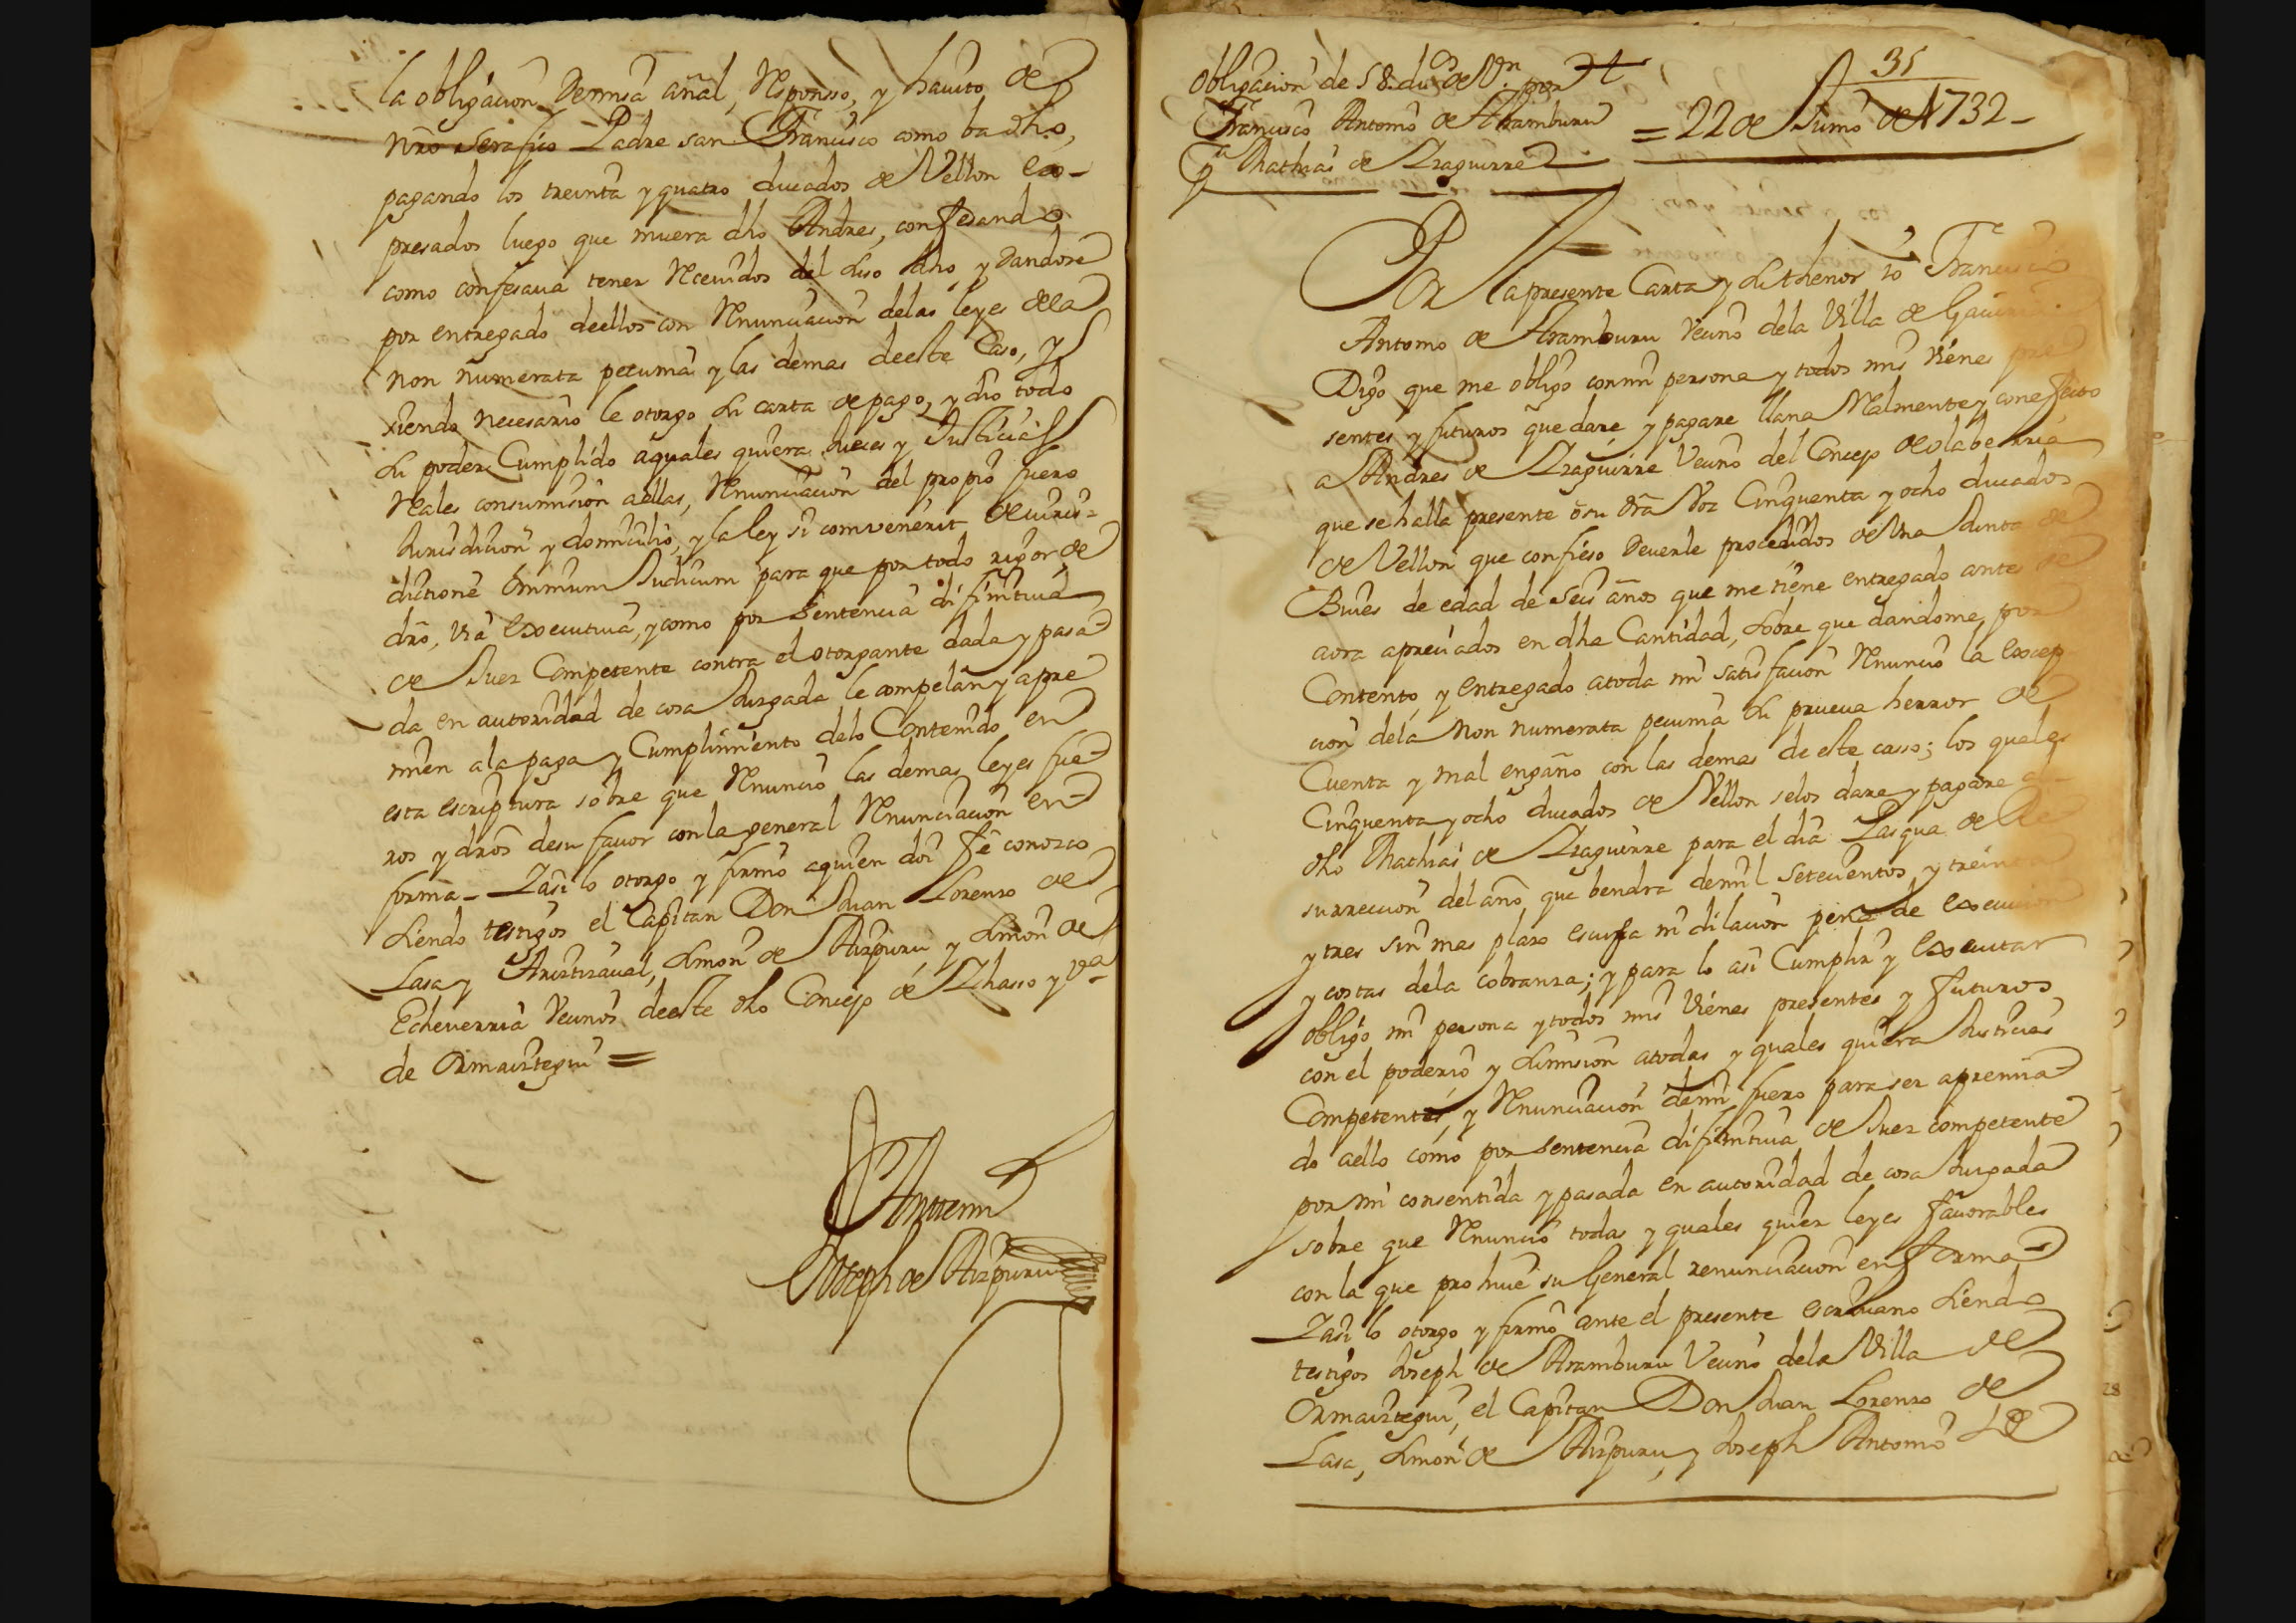 la obligacion de missa añal, Responsso, y hauito de
nr̃o Serafico Padre san Francisco como ba dho,
pagando los treinta y quatro ducados de Vellon ex-
presados luego que muera dho Andres, confesando
como confesaua tener Receuidos del suso dho y dandose
por entregado deellos con Renunciacion delas leyes dela
non numerata pecunia y las demas deeste Caso, y
siendo necesario le otorgo su carta de pago, y dio todo
su poder Cumplido aquales quiera Jueces y Justicias
Reales consumision aellas, Renunciacion del propio fuero
Jurisdicion y domicilio, y la ley si combenerit de Juris-
dictione omnium Judicum para que por todo rigor de
drõ, via executiua, y como por sentencia difinitiua
de Juez Competente contra el otorgante dada y pasa
da en autoridad de cosa Juzgada le compelan y apre
mien ala paga y Cumplimiento delo Contenido en
esta escriptura sobre que Renuncio las demas leyes fue
ros y drõs desu fauor conla general Renunciacion en
forma_ Y asi lo otorgo y firmo aquien doi fe conozco
siendo testigos el Capitan Don Juan Lorenzo de
Lasa y Ariztizaual, Simon de Aizpuru y Simon de
Echeverria Vecinos deeste dho Concejo de Ychasso y Va
de Ormaiztegui =
Antemi
Joseph de Aizpuru
obligacion de 58 dus de Vn por
Francisco Antonio de Aramburu
Pa Mathias de Yzaguirre
35
=22 de Junio de 1732_
Por la presente Carta y su thenor Yo Francisco
Antonio de Aramburu vecino dela Villa de Gauiria
Digo que me obligo conmi persona y todos mis vienes pre
sentes y futuros que dare y pagare llana Realmente y conefecto
a Andres de Yzaguirre Vecino del Concejo de olaberria
que se halla presente o su dr̃a Voz Cinquenta y ocho ducados
de Vellon que confieso Deuerle procedidos de vna Junta de
Bueis de edad de seis años que me tiene entregado antes de
aora apreciados en dha Cantidad, sobre que dandome por
Contento, y entregado atoda mi satisfacion Renuncio la excep
cion dela non numerata pecunia su prueua herror de
Cuenta y mal engaño con las demas de este casso; los quales
Cinquenta y ocho ducados de Vellon selos dare y pagare al
dho Mathias de Yzaguirre para el dia Pasqua de Re
surreccion del año que bendra demil Setecientos y treinta
y tres sin mas plazo escusa ni dilacion pena de execucion
y costas dela cobranza; y para lo asi Cumplir y executar
obligo mi persona y todos mis vienes presentes y futuros
con el poderio y sumision atodas y quales quiera Justicias
Competentes, y Renunciacion demi fuero para ser apremia
do aello como por sentencia difinitiua de Juez competente
por mi consentida y pasada en autoridad de cosa Juzgada
sobre que Renuncio todas y quales quier leyes fauorables
con la que prohiue su General renunciacion en forma
Y asi lo otorgo y firmo ante el presente escriuano siendo
testigos Joseph de Aramburu Vecino dela Villa de
Ormaiztegui, el Capitan Don Juan Lorenzo de
Lasa, Simon de Aizpuru, y Joseph Antonio de